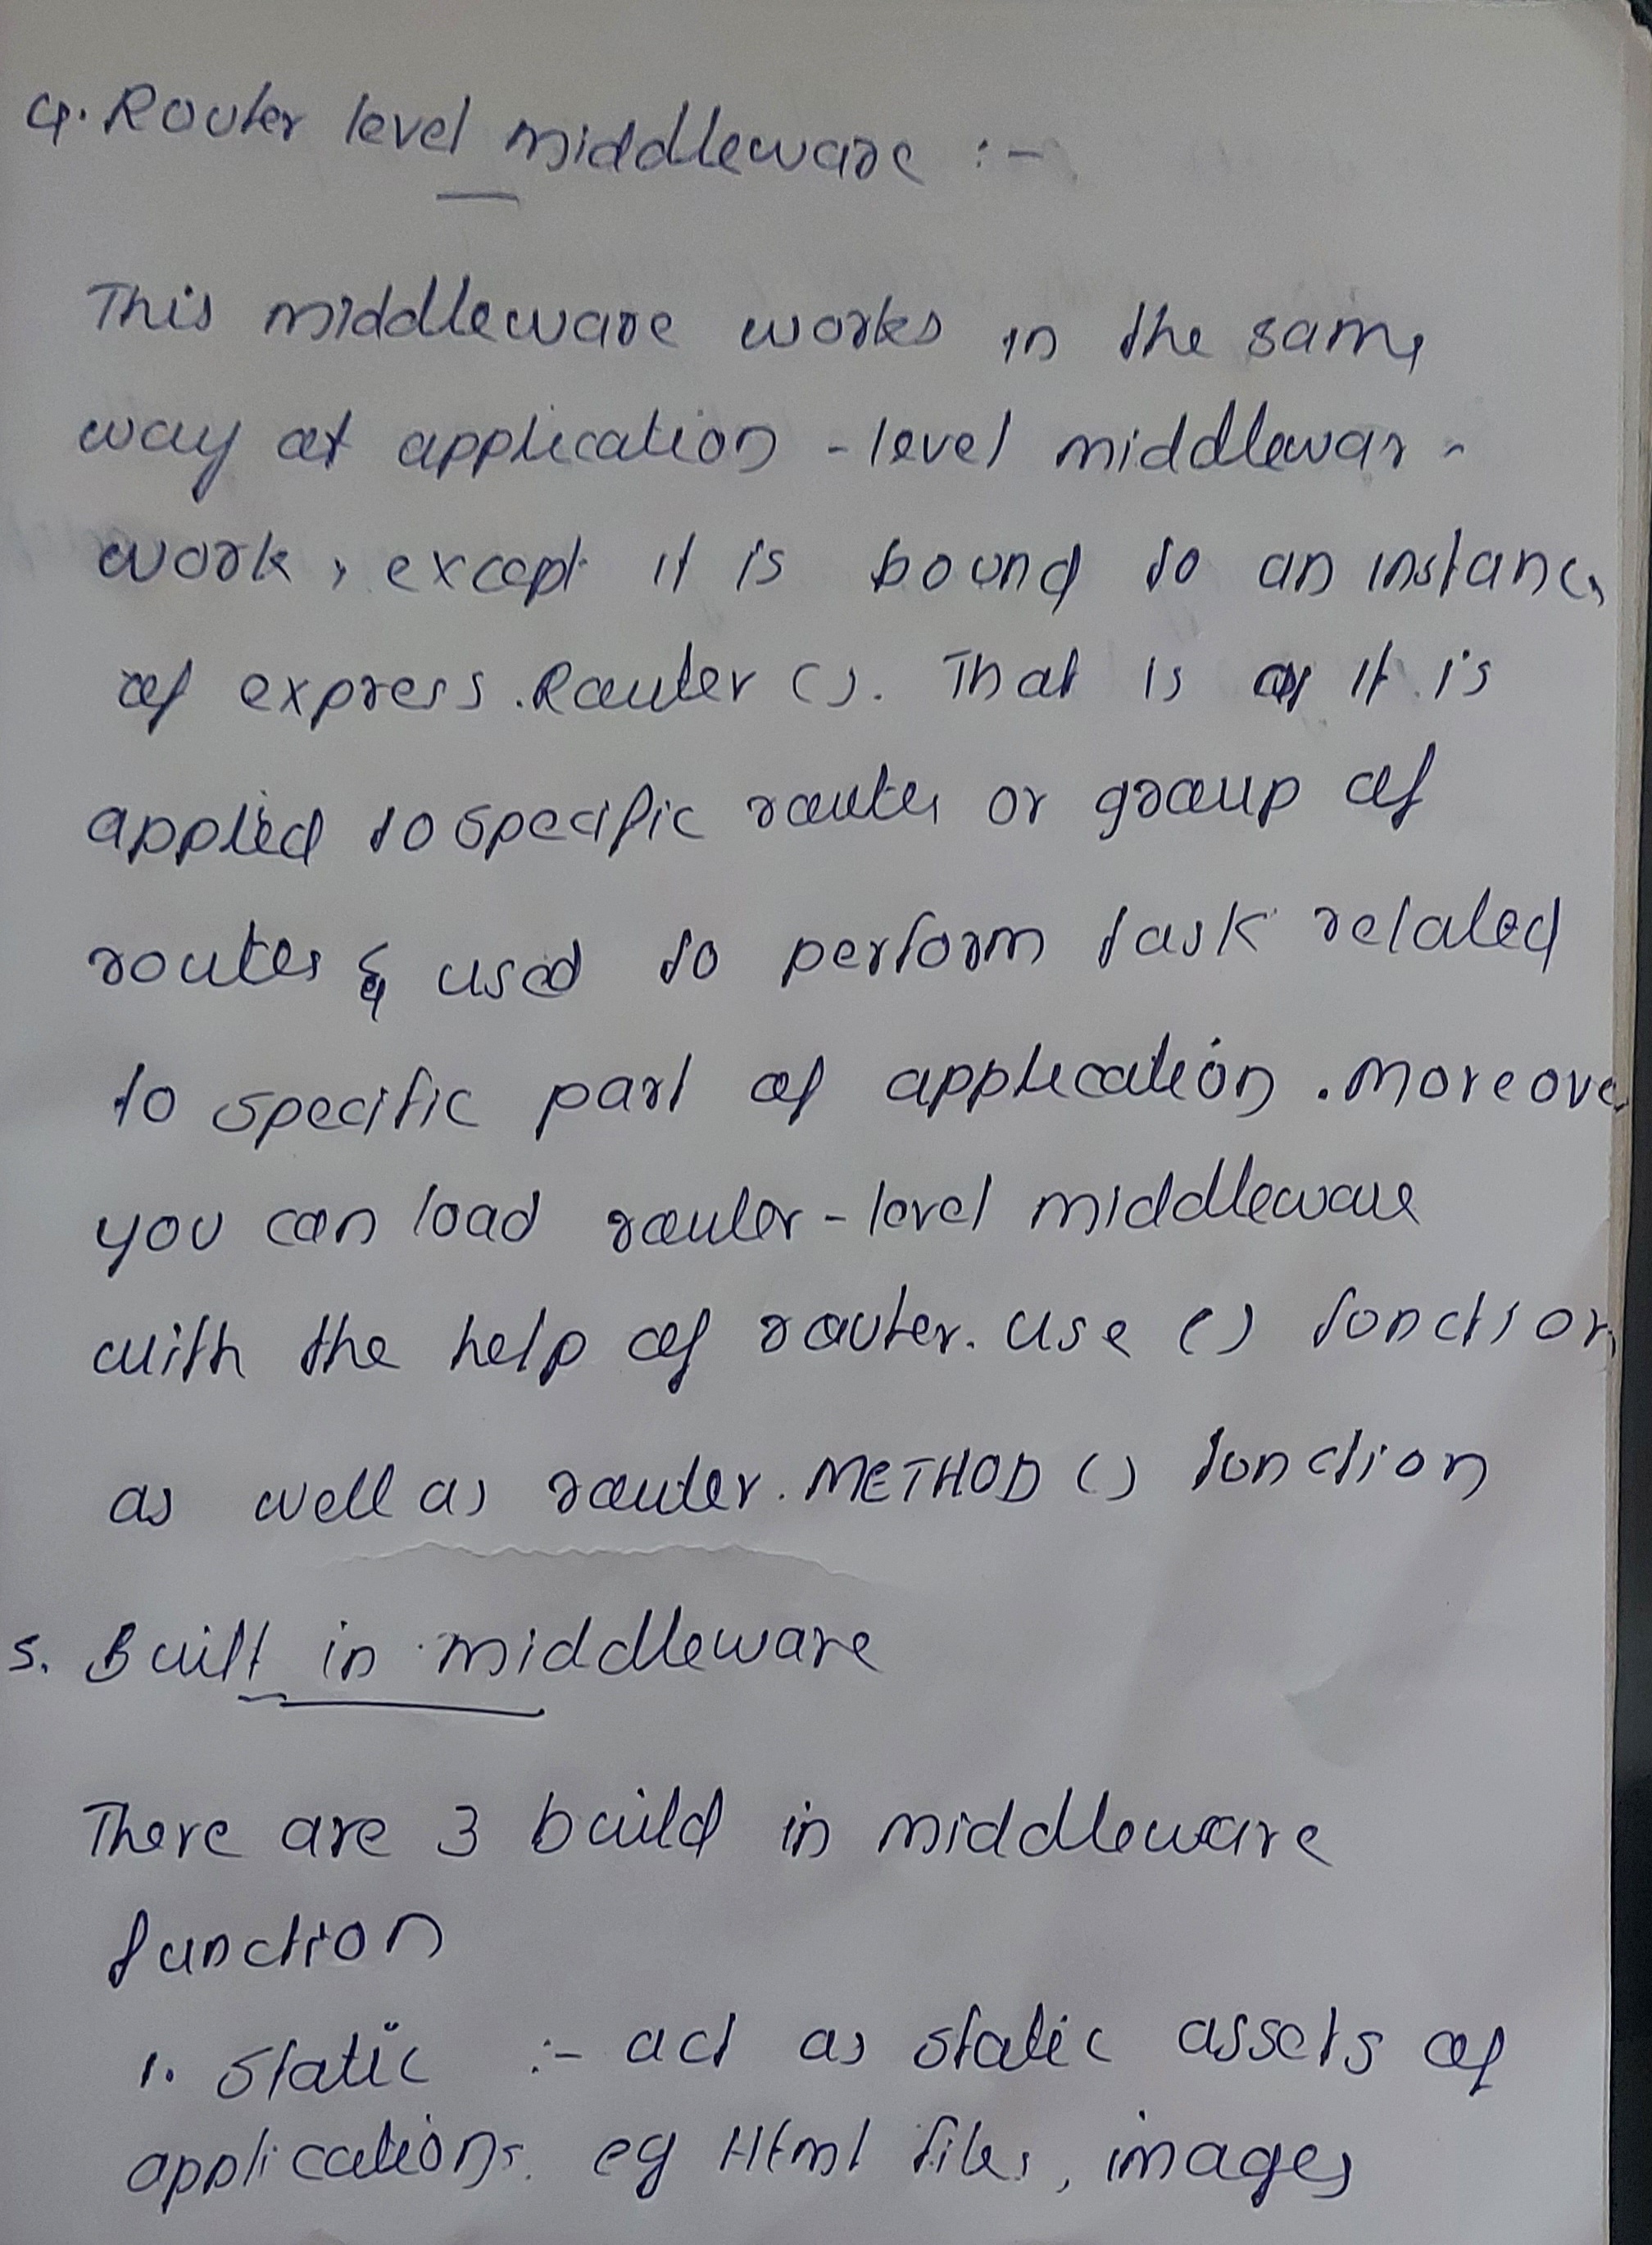 4. Router level middleware :-
This middleware works in the same
way at application - level middleware
work, except it is bound to an instance
of express.Router (). That is it is
applied to specific routes or group of
routes & used to perform task related
to specific part of application. Moreover
you can load router - level middleware
with the help of router. use () function
as well as router. METHOD () function
5. Built in middleware
There are 3 build in middleware
function
1. Static :- act as static assets of
applications. eg Html files, images